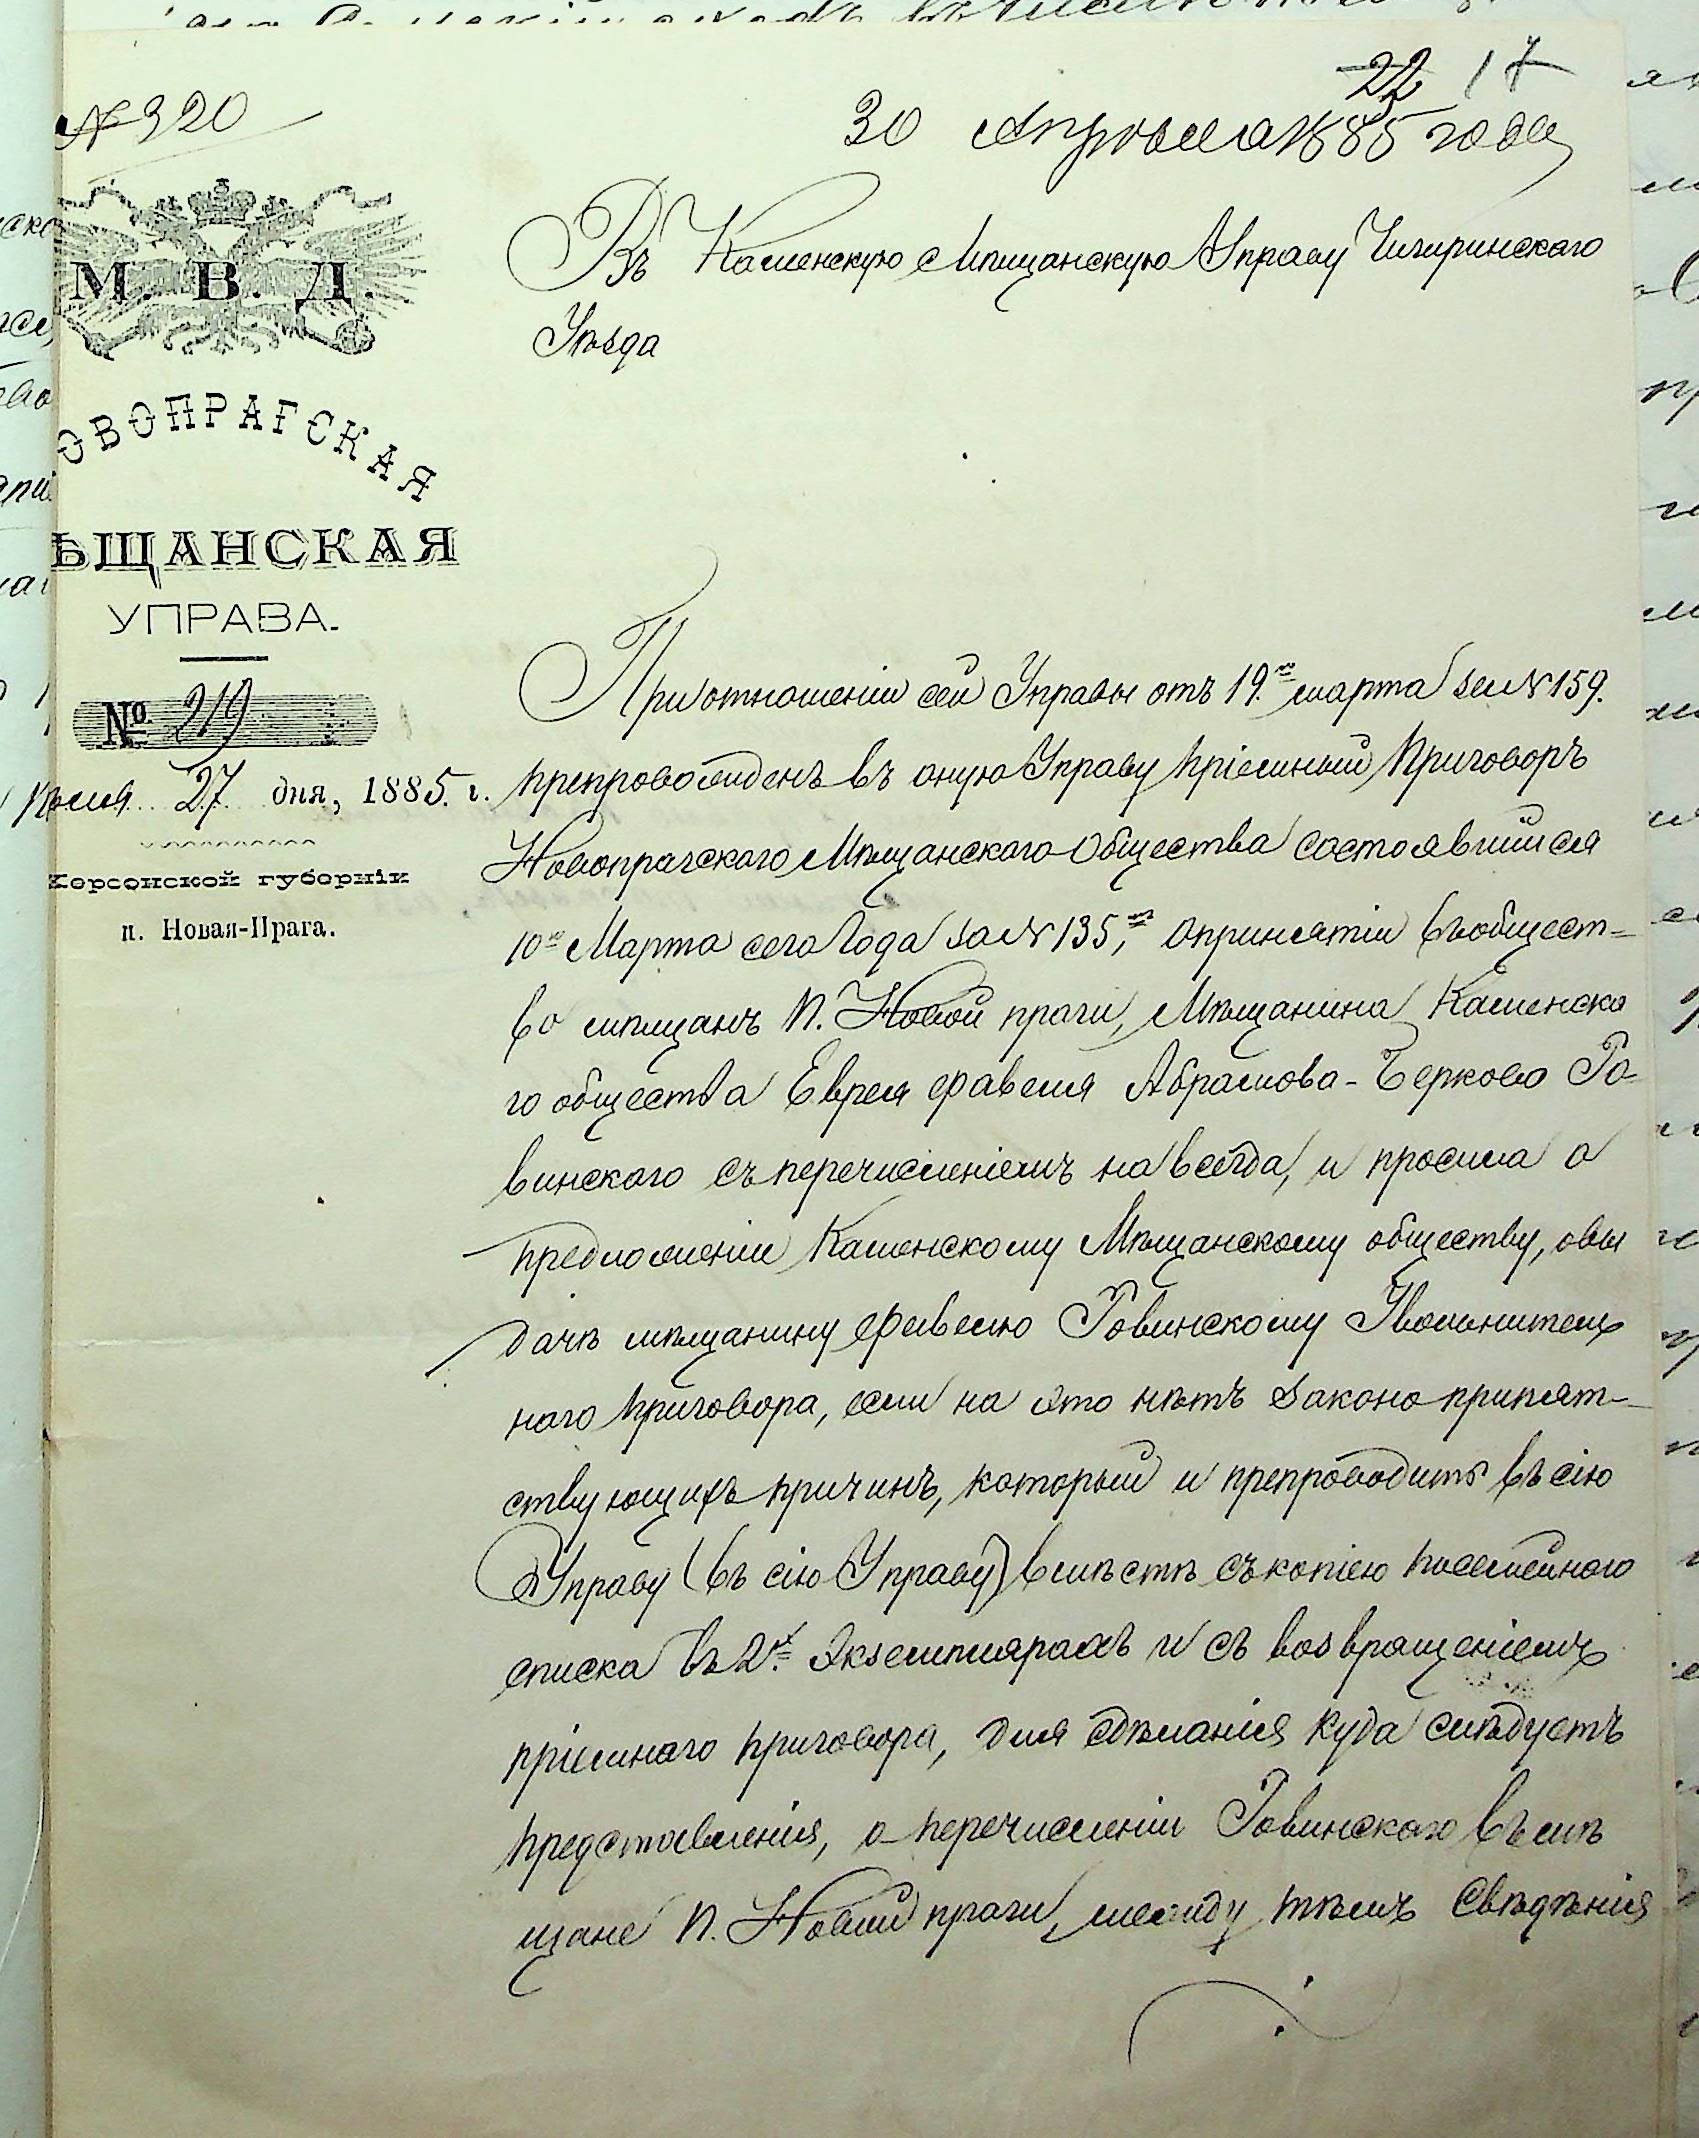 22 17
№ 320
30 Апрѣля 1885 года
М. В. Д.
ОВОПРАГСКАЯ
ѢЩАНСКАЯ
УПРАВА.
№ 219
27 дня, 1885. г.
Херсонской губерніи
п. Новая-Прага.
Въ Каменскую Мѣщанскую Управу Чигиринскаго
Уѣзда
При отношеніи сей Управы отъ 19го марта за № 159.
препровожденъ въ оную Управу пріемный Приговоръ
Новопрагскаго Мѣщанскаго Общества состоявшійся
10го Марта сего Года за № 135, о принятіи въ общест-
во мѣщанъ П. Новой праги, Мѣщанина Каменска
го общества Еврея Абрамова-Беркова Ро-
винского съ перечисленіемъ на всегда, и просила о
предложеніи Каменскому Мѣщанскому обществу, о вы
дачѣ мѣщанину Ровинскому Увольнитель
наго приговора, если на это нѣтъ законо припят-
ствующихъ причинъ, который и препроводить въ сію
Управу (въ сію Управу) вмѣстѣ съ копіею посемейного
списка въ 2х Экземплярахъ и съ возвращеніемъ
пріемнаго приговора, для сдѣланія куда слѣдуетъ
представленія, о перечисленіи Ровинскаго въ мѣ
щане п. Новой праги, между тѣмъ Свѣдѣнія